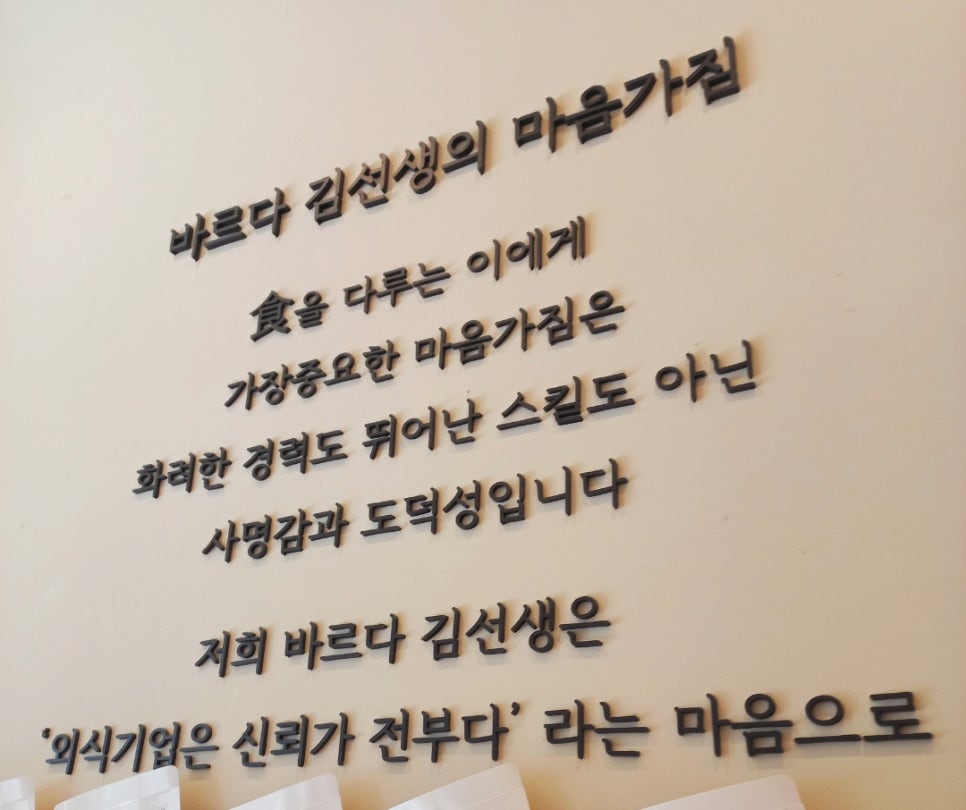 바르다 김선생의 마음가짐
食을 다루는 이에게
가장중요한 마음가짐은
화려한 경력도 뛰어난 스킬도 아닌
사명감과 도덕성입니다
저희 바르다 김선생은
'외식기업은 신뢰가 전부다' 라는 마음으로